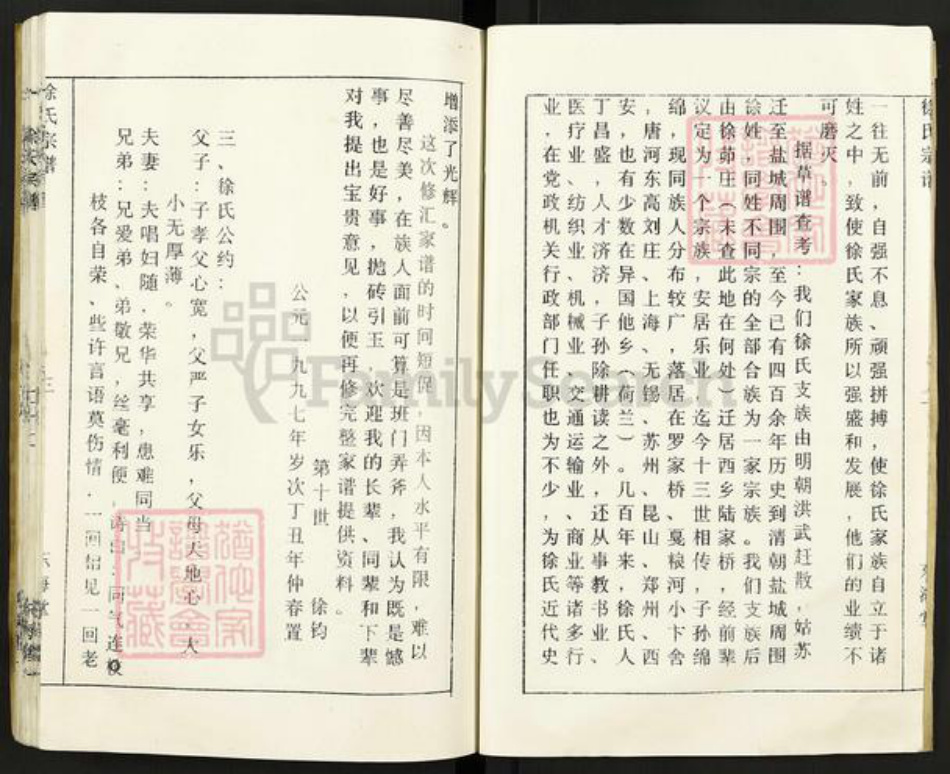 徐氏宗谱
一往无前，自强不息、顽强拼搏，使徐氏家族自立于诸
姓之中，致使徐氏家族所以强盛和发展，他们的业绩不
可磨灭。
据草谱查考：我们徐氏支族由明朝洪武赶散，姑苏
迁至盐城周围，至今已有四百余年历史到清朝盐城周围
徐姓，同姓不同宗的全部合族为一家宗族。我们支族后
由徐茆庄（未查此地在何处）迁居西乡陆家桥，经前辈
议定为一个宗族，安居乐业，迄今十三世相传，子孙绵
绵，现同族人分布较广，落居在罗家桥、戛粮河小卞舍
，唐河东高刘庄、上海、无锡、苏州、昆山、郑州、西
安，也有少数在异国他乡（荷兰）。几百年来，徐氏人
丁昌盛，人才济济，子孙除耕读之外，还从事教书业、
医疗业、纺织业、机械业、交通运输业、商业等诸多行
业，在党政机关行政部门任职也为不少，为徐氏近代史
增添了光辉。
这次修汇家谱的时间短促，因本人水平有限，难以
尽善尽美，在族人面前可算是班门弄斧，我认为既是憾
事，也是好事，抛砖引玉，欢迎我的长辈、同辈和下辈
对我提出宝贵意见，以便再修完整家谱提供资料。
第十世 徐钧
公元一九九七年岁次丁丑年仲春置
三、徐氏公约：
父子：子孝父心宽，父严子女乐，父母天地心，大
小无厚薄。
夫妻：夫唱妇随，荣华共享，患难同当
兄弟：兄爱弟、弟敬兄，丝毫利便，同气连枝
枝各自荣、些许言语莫伤情，一回相见一回老
徐氏宗谱
FamilySearch